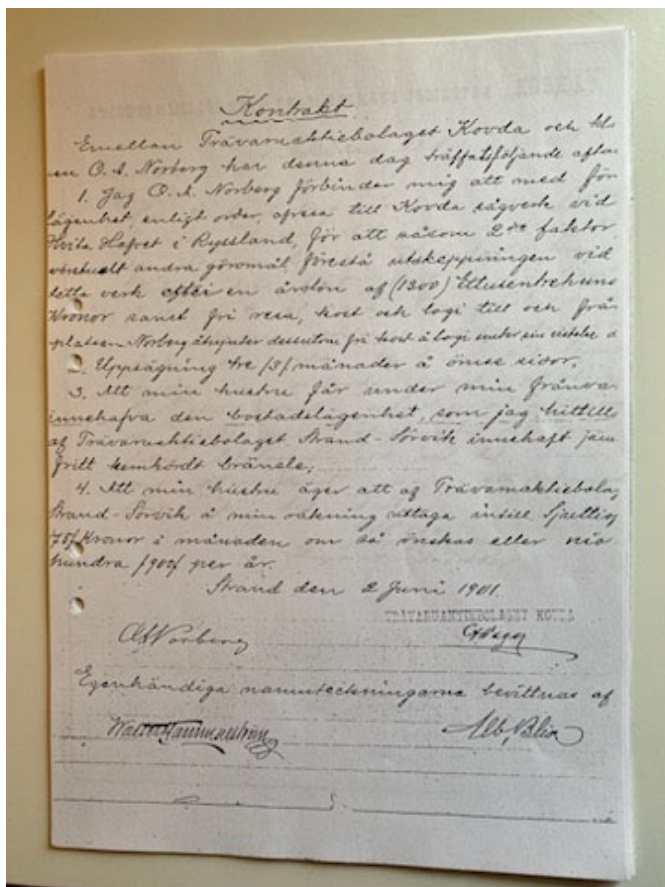 Kontrakt
Emellan Trävaruaktiebolaget Kovda och
en O. A. Norberg har denna dag träffats följande afta
1. Jag O. A. Norberg förbinder mig att med för
lägenhet, enligt order, afresa till Kovda sågverk vid
Hvita Hafvet i Ryssland, för att såsom 2dre faktor,
eventuelt andra göromål, förestå utskeppningen vid
detta verk efter en årslön af (1300) Ettusentrehun
Kronor samt fri resa, kost och logi till och från
platsen. Norberg åtnjuter dessutom fri kost å logi under sin vistelse d
2. Uppsägning tre /3/ månader å ömse sidor;
3. Att min hustru får under min frånva
innehafva den bostadslägenhet, som jag hittills
af Trävaruaktiebolaget Strand-Sörvik innehaft jäm
fritt hemkördt bränsle;
4. Att min hustru äger att af Trävaruaktiebolag
Strand-Sörvik å min räkning uttaga intill Sjuttio
75/ Kronor i månaden om så önskas eller nio
hundra /900/ per år.
Strand den 2 Juni 1901.
TRÄVARUAKTIEBOLAGET KOVDA
O A Norberg
Egenhändiga namnteckningarne bevittnas af
Alb. Blix